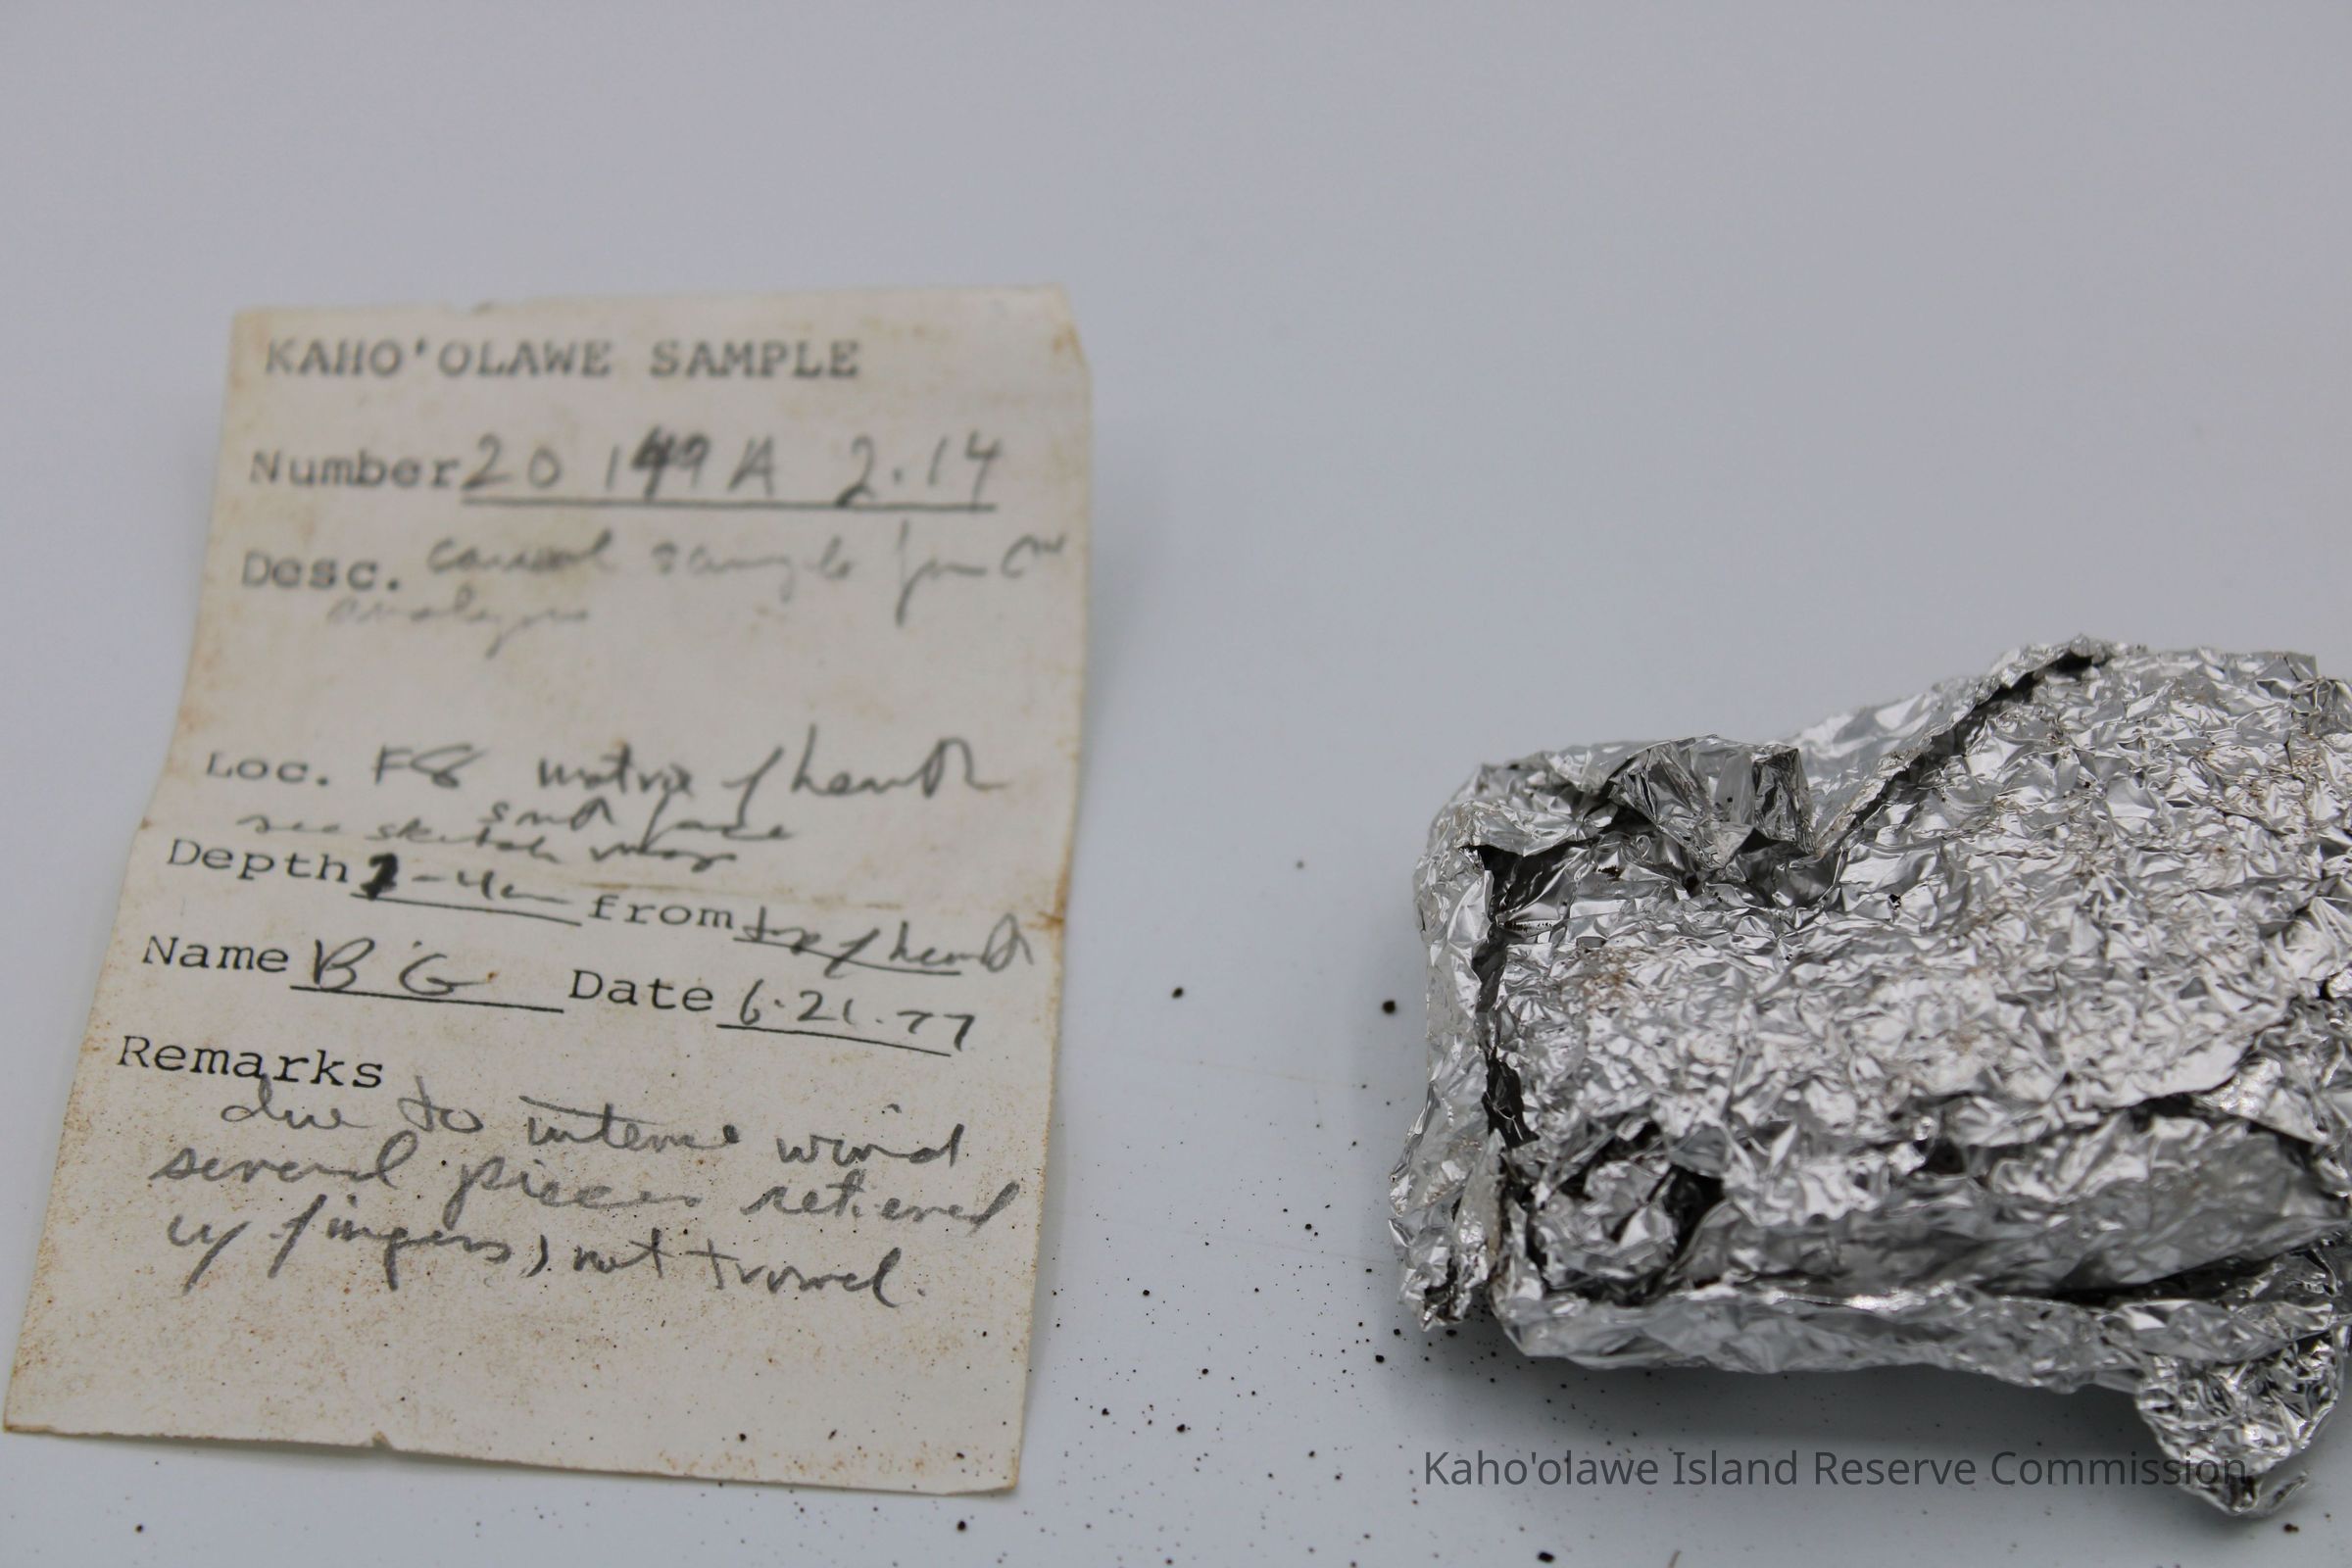 KAHO'OLAWE SAMPLE
Number 20 149 A 2.14
Desc. sample for C14
analysis
Loc. F8 matrix of hearth
south face
see sketch map
Depth 2-4cm from top of hearth
Name BG Date 6.21.77
Remarks
due to intense wind
several pieces retrieved
w/ fingers, not trowel.
Kaho'olawe Island Reserve Commission